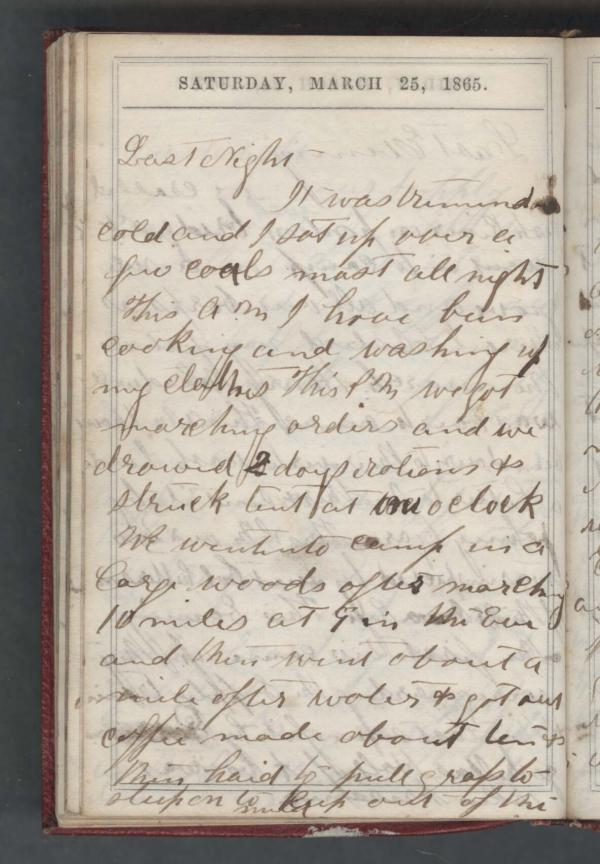 SATURDAY, MARCH 25, 1865.
Last Night
It was trimend
cold and I sat up over a
few coals most all night
This A.M I have bin
cooking and washing up
my clothes This P.M we got
marching orders and we
drawed 2 days rations &
struck tent at one oclock
We went into camp in a
large woods after marching
10 miles at 9 in the Eve
and then went about a
mile after water & got our
coffee made about ten &
then haid to pull grap to
sleep on to keep out of the
mud